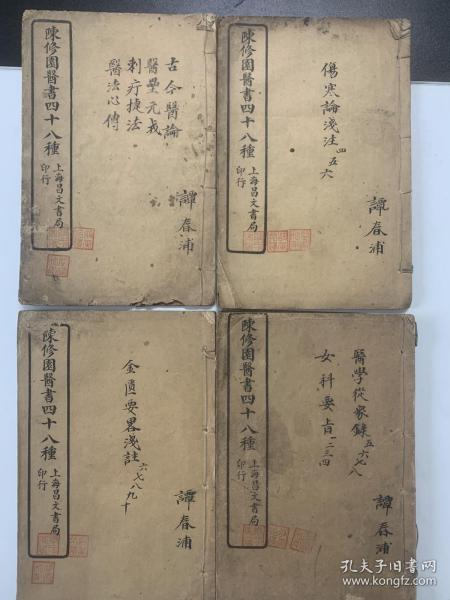 陳修園醫書四十八種
上海昌文書局
印行
古今醫論
醫壘元戎
刺疔捷法
醫法心傳
譚春浦
陳修園醫書四十八種
上海昌文書局
印行
傷寒論淺注 四五六
譚春浦
陳修園醫書四十八種
上海昌文書局
印行
金匱要畧淺註 六七八九十
譚春浦
陳修園醫書四十八種
上海昌文書局
印行
醫學從衆錄 五六七八
女科要旨 一二三四
譚春浦
孔夫子旧书网
www.kongfz.com